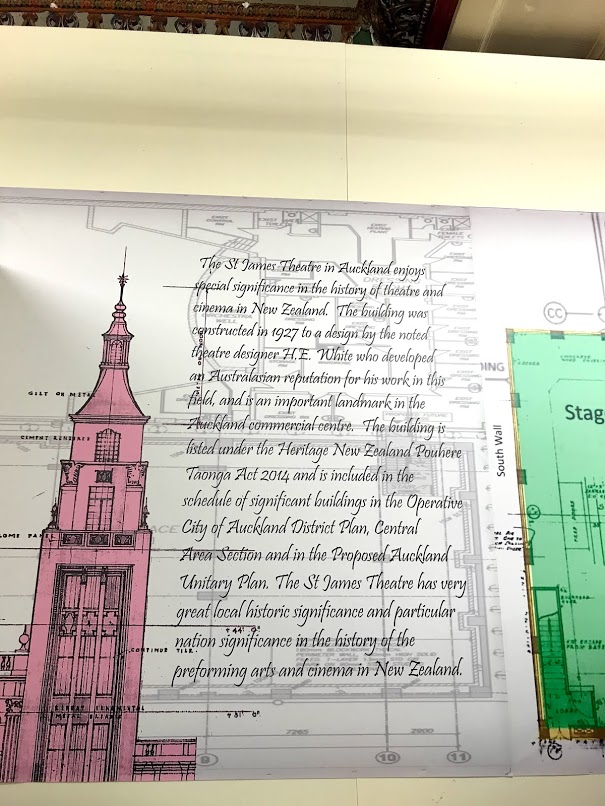 The St James Theatre in Auckland enjoys
special significance in the history of theatre and
cinema in New Zealand. The building was
constructed in 1927 to a design by the noted
theatre designer H.E. White who developed
an Australasian reputation for his work in this
field, and is an important landmark in the
Auckland commercial centre. The building is
listed under the Heritage New Zealand Pouhere
Taonga Act 2014 and is included in the
schedule of significant buildings in the Operative
City of Auckland District Plan, Central
Area Section and in the Proposed Auckland
Unitary Plan. The St James Theatre has very
great local historic significance and particular
nation significance in the history of the
preforming arts and cinema in New Zealand.
GILT ON METAL
CEMENT RENDERED
CONTINUE TILE.
7265
2900
9
10
11
CC
DING
South Wall
Stag